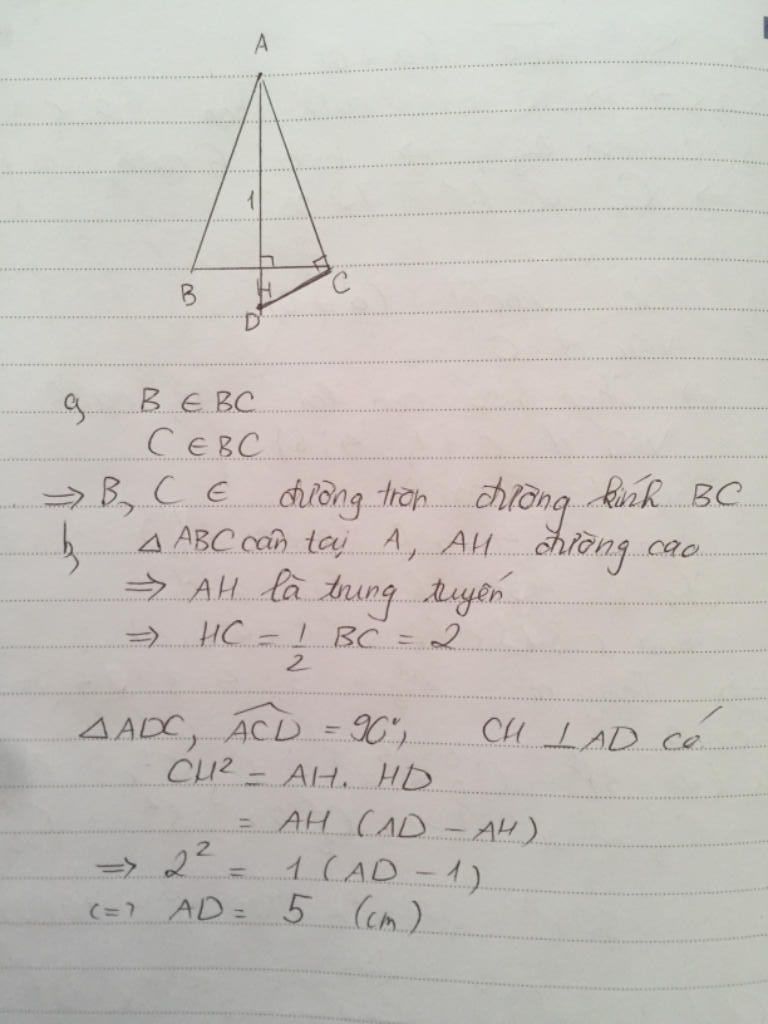 A
1
B H C
D
a, B ∈ BC
C ∈ BC
⇒ B, C ∈ đường tròn đường kính BC
b, △ ABC cân tại A, AH đường cao
⇒ AH là trung tuyến
⇒ HC = 1/2 BC = 2
△ADC, \widehat{ACD} = 90°, CH ⊥ AD có
CH² = AH. HD
= AH (AD - AH)
⇒ 2² = 1 (AD - 1)
<=> AD = 5 (cm)